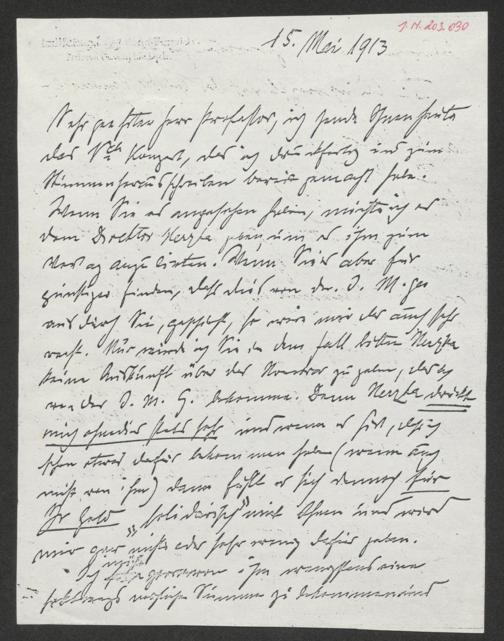 I.N. 203.030
15. Mai 1913
Sehr geehrter Herr Professor, ich sende Ihnen heute
das Vcll Konzert, das ich druckfertig und zum
Stimmenherausschreiben bereit gemacht habe.
Wenn Sie es angesehen haben, möchte ich es
dem Director Hertzka geben um es ihm zum
Verlag anzubieten. Wenn Sie es aber für
günstiger finden, daß dies von der D. M. G.
aus durch Sie, geschieht, so wäre mir das auch sehr
recht. Nur würde ich Sie in dem Fall bitten Hertzka
keine Auskunft über das Honorar zu geben, das ich
von der D. M. G. bekomme. Denn Hertzka drückt
mich ohnedies stets sehr und wenn er hört, daß ich
schon etwas dafür bekommen habe (wenn auch
nicht von ihm) dann fühlt er sich dennoch für
Ihr Geld „solidarisch" mit Ihnen und wird
mir gar nichts oder sehr wenig dafür geben.
Ich möchte von ihm wenigstens eine
halbwegs mögliche Summe zu bekommen und